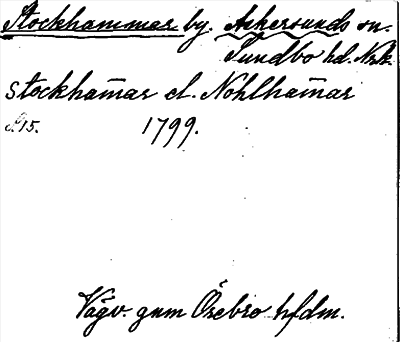 Stockhammar by. Askersunds sn.
Sundbo hd. Nrk.
stockham̄ar el. Nohlham̄ar
S. 15. 1799.
Vägv. gnm Örebro hfdm.